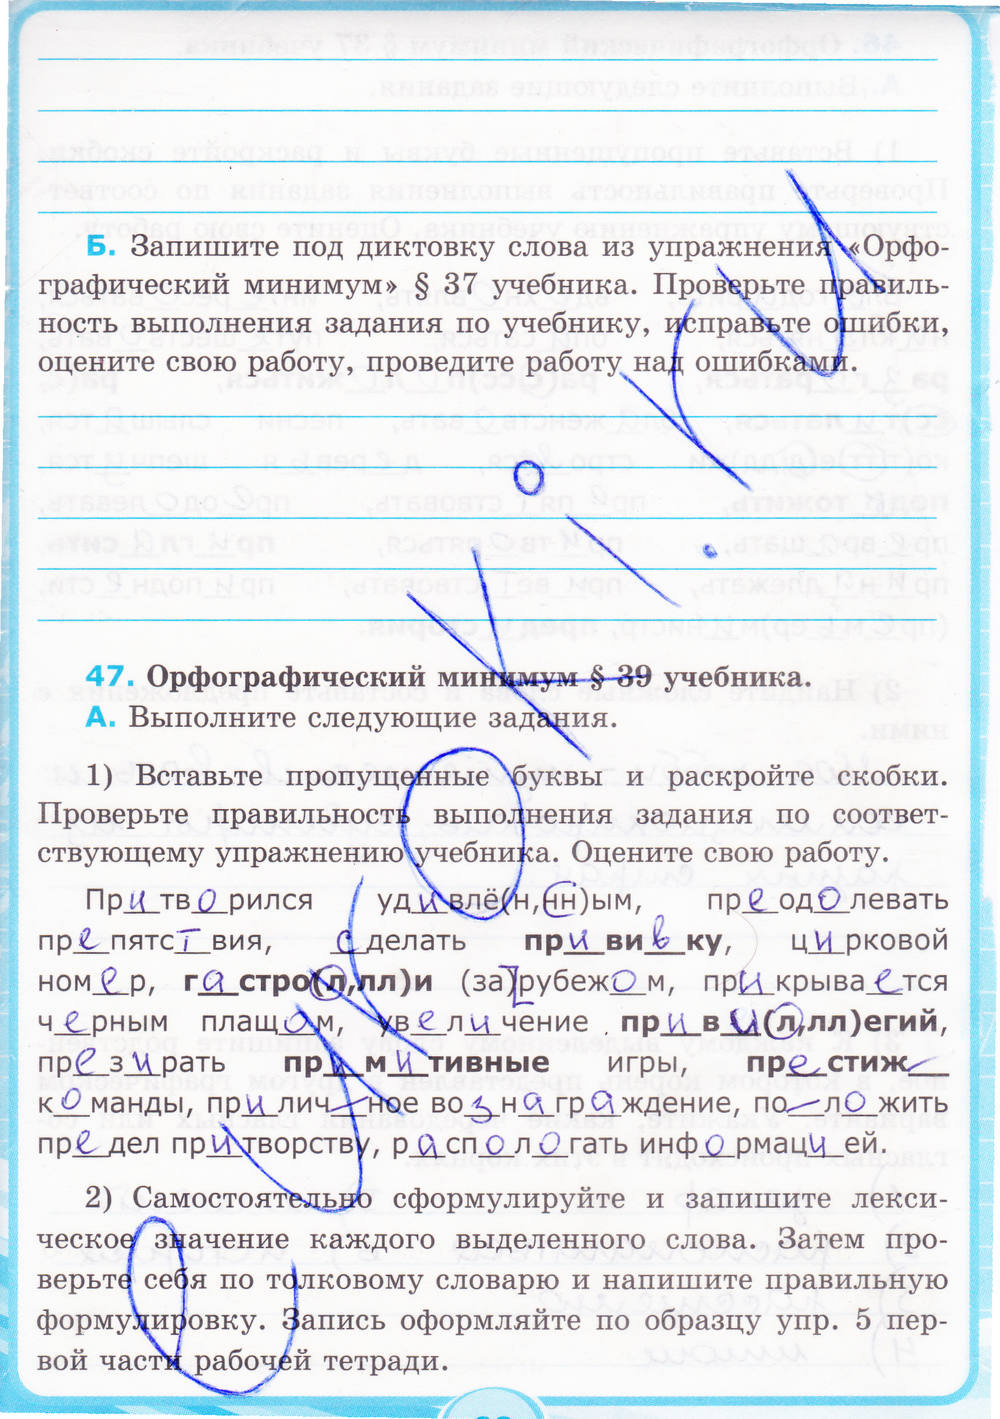 Б. Запишите под диктовку слова из упражнения «Орфо-
графический минимум» § 37 учебника. Проверьте правиль-
ность выполнения задания по учебнику, исправьте ошибки,
оцените свою работу, проведите работу над ошибками.
47. Орфографический минимум § 39 учебника.
А. Выполните следующие задания.
1) Вставьте пропущенные буквы и раскройте скобки.
Проверьте правильность выполнения задания по соответ-
ствующему упражнению учебника. Оцените свою работу.
Притворился удивлё(н,нн)ым, преодолевать
препятствия, сделать прививку, цирковой
номер, гастро(л,лл)и (за)рубежом, прикрывается
черным плащом, увеличение привил(л,лл)егий,
презирать примитивные игры, престиж
команды, приличное вознаграждение, положить
предел притворству, располагать информацией.
2) Самостоятельно сформулируйте и запишите лекси-
ческое значение каждого выделенного слова. Затем про-
верьте себя по толковому словарю и напишите правильную
формулировку. Запись оформляйте по образцу упр. 5 пер-
вой части рабочей тетради.